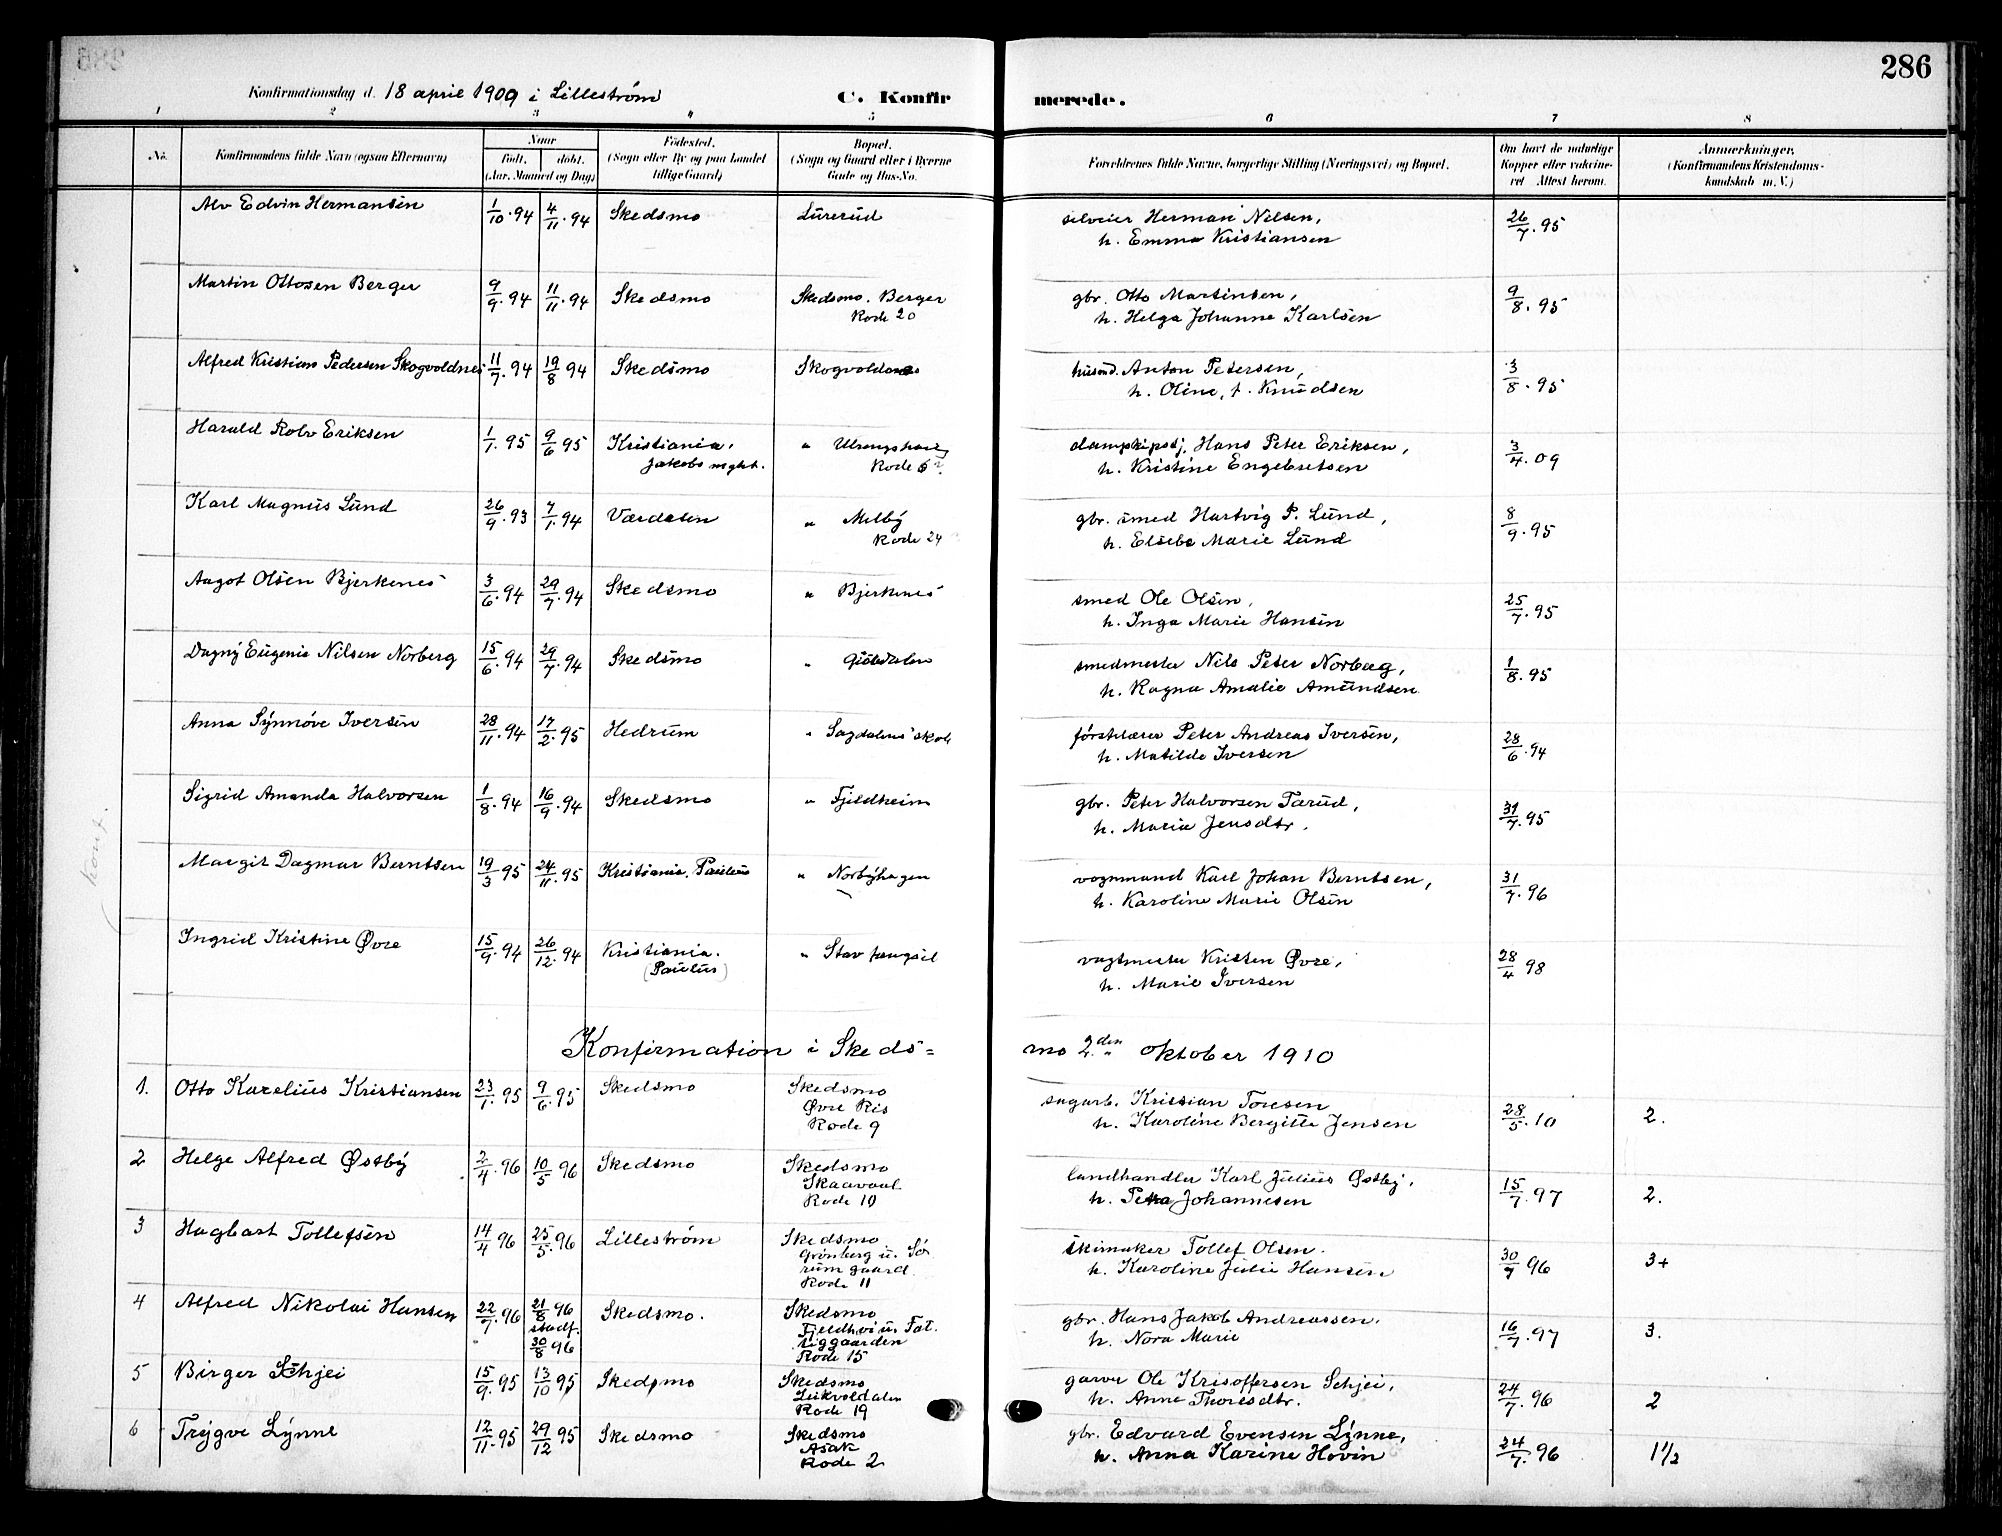 286
Konfirmationsdag d. 18 april 1909 i Lilleström
C. Konfirmerede.
1 2 3 4 5 6 7 8
No. Konfirmandens fulde Navn (ogsaa Efternavn)
Naar født. døbt. (Aar, Maaned og Dag)
Fødested. (Sogn eller By og paa Landet tillige Gaard)
Bopæl. (Sogn og Gaard eller i Byerne Gade og Hus-No.
Forældrenes fulde Navne, borgerlige Stilling (Næringsvei) og Bopæl.
Om havt de naturlige Kopper eller vakcineret Attest herom.
Anmærkninger. (Konfirmandens Kristendomskundskab m. V.)
Alv Edvin Hermansen 1/10. 94 4/11. 94 Skedsmo Lurerud Herman Nilsen, 26/7. 95
h. Emma Kristiansen
Martin Ottosen Berger 9/9. 94 11/11. 94 Skedsmo Skedsmo. Berger gbr. Otto Martinsen, 9/8. 95
Rode 20 h. Helga Johanne Karlsen
Alfred Kristian Pedersen Skogvoldnes 11/7. 94 19/8 94 Skedsmo Skogvoldnes husmd. Anton Petersen, 3/8. 95
h. Oline, f. Knudsen
Harald Rolv Eriksen 1/1. 95 9/6 95 Kristiania, " Hans Peter Eriksen, 3/4. 09
Jakobs mght. Rode h. Kristine Engebretsen
Karl Magnus Lund 26/9. 93 7/1. 94 Værdalen " Melby gbr. smed Hartvig P. Lund, 8/9. 95
Rode 24 h. Elsebe Marie Lund
Aagot Olsen Bjerkenes 3/6. 94 29/7. 94 Skedsmo " Bjerkenes smed Ole Olsen, 25/7. 95
h. Inga Marie Hansen
Dagny Eugenie Nilsen Norberg 15/6. 94 29/7. 94 Skedsmo " smedmester Nils Peter Norberg, 1/8. 95
h. Ragna Amalie Amundsen
Anna Synnöve Iversen 28/11. 94 17/2. 95 Hedrum " Sagdalens skole förstelærer Peter Andreas Iversen, 28/6. 94
h. Matilde Iversen
Sigrid Amanda Halvorsen 1/8. 94 16/9. 94 Skedsmo " Fjeldheim gbr. Peter Halvorsen Tærud, 31/7. 95
h. Maria Jensdtr.
Margit Dagmar Berntsen 19/3 95 24/11. 95 Kristiania, Paulus " Norbyhagen vognmand Karl Johan Berntsen, 31/7. 96
h. Karoline Marie Olsen
Ingrid Kristine Øvre 15/9. 94 26/12. 94 Kristiania. " Stav fængsel vagtmester Kristen Øvre, 28/4 98
(Paulus) h. Marie Iversen
Konfirmation i Skeds= mo 2den oktober 1910
1. Otto Karelius Kristiansen 23/1. 95 9/6. 95 Skedsmo Skedsmo sagarb. Kristian Toresen 28/5. 10 2.
Øvre Ris h. Karoline Bergitte Jensen
Rode 9
2 Helge Alfred Østby 2/4. 96 10/5 96 Skedsmo Skedsmo landhandler Karl Julius Østby, 15/7. 97 2.
Skaavoal h. Petra Johannesen
Rode 10
3 Hagbart Tollefsen 14/4 96 25/5. 96 Lilleström Skedsmo skimaker Tollef Olsen. 30/7 96 3+
Grönberg u. Sö h. Karoline Julie Hansen
rum gaard
Rode 11
4 Alfred Nikolai Hansen 22/7. 96 21/8 96 Skedsmo. Skedsmo gbr. Hans Jakob Andreassen. 16/7. 97 3.
stadf. 30/8 96 Fjeldhei u. Fat. h. Nora Marie
tiggaarden
Rode 15
5 Birger Schjei 15/9. 95 13/10 95 Skedsmo Skedsmo garver Ole Kristoffersen Schjei, 24/7. 96 2
Leikvoldalen h. Anne Thoresdtr.
Rode 19
6 Trygve Lynne 12/11. 95 29/12 95 Skedsmo Skedsmo gbr. Edvard Evensen Lynne, 24/7. 96 1 1/2
Asak h. Anna Karine Hovin
Rode 2